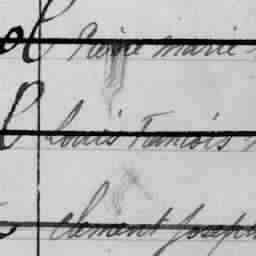 Pierre Marie
Louis François
Clement Joseph